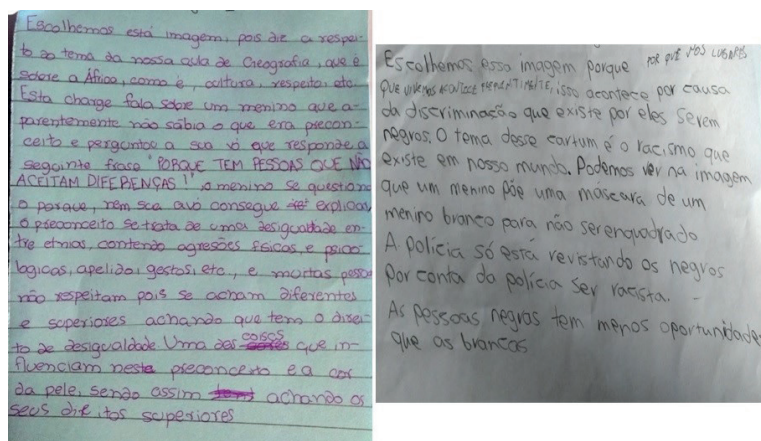 Escolhemos está imagem, pois diz a respei-
to ao tema da nossa aula de Geografia, que é
sobre a África, como é, cultura, respeito, etc.
Esta charge fala sobre um menino que a-
parentemente não sábia o que era precon-
ceito e perguntou a sua vó que responde a
seguinte frase "PORQUE TEM PESSOAS QUE NÃO
ACEITAM DIFERENÇAS!" o menino se questiona
o porque, nem sua avó consegue explicar,
o preconceito se trata de uma desigualdade en-
tre etnias, contendo agresões físicas, e psico
logicas, apelido, gestos, etc., e muitas pessoas
não respeitam pois se acham diferentes
e superiores achando que tem o direi-
to de desigualdade Uma das coisas que in-
fluenciam neste preconceito e a cor
da pele, sendo assim achando os
seus direitos superiores
Escolhemos essa imagem porque POR QUE NOS LUGARES
QUE VIVEMOS ACONTECE, isso acontece por causa
da discriminação que existe por eles serem
negros. O tema desse cartum é o racismo que
existe em nosso mundo. Podemos ver na imagem
que um menino põe uma máscara de um
menino branco para não ser enquadrado
A polícia só está revistando os negros
por conta da polícia ser racista.
As pessoas negras tem menos oportunidades
que as brancas